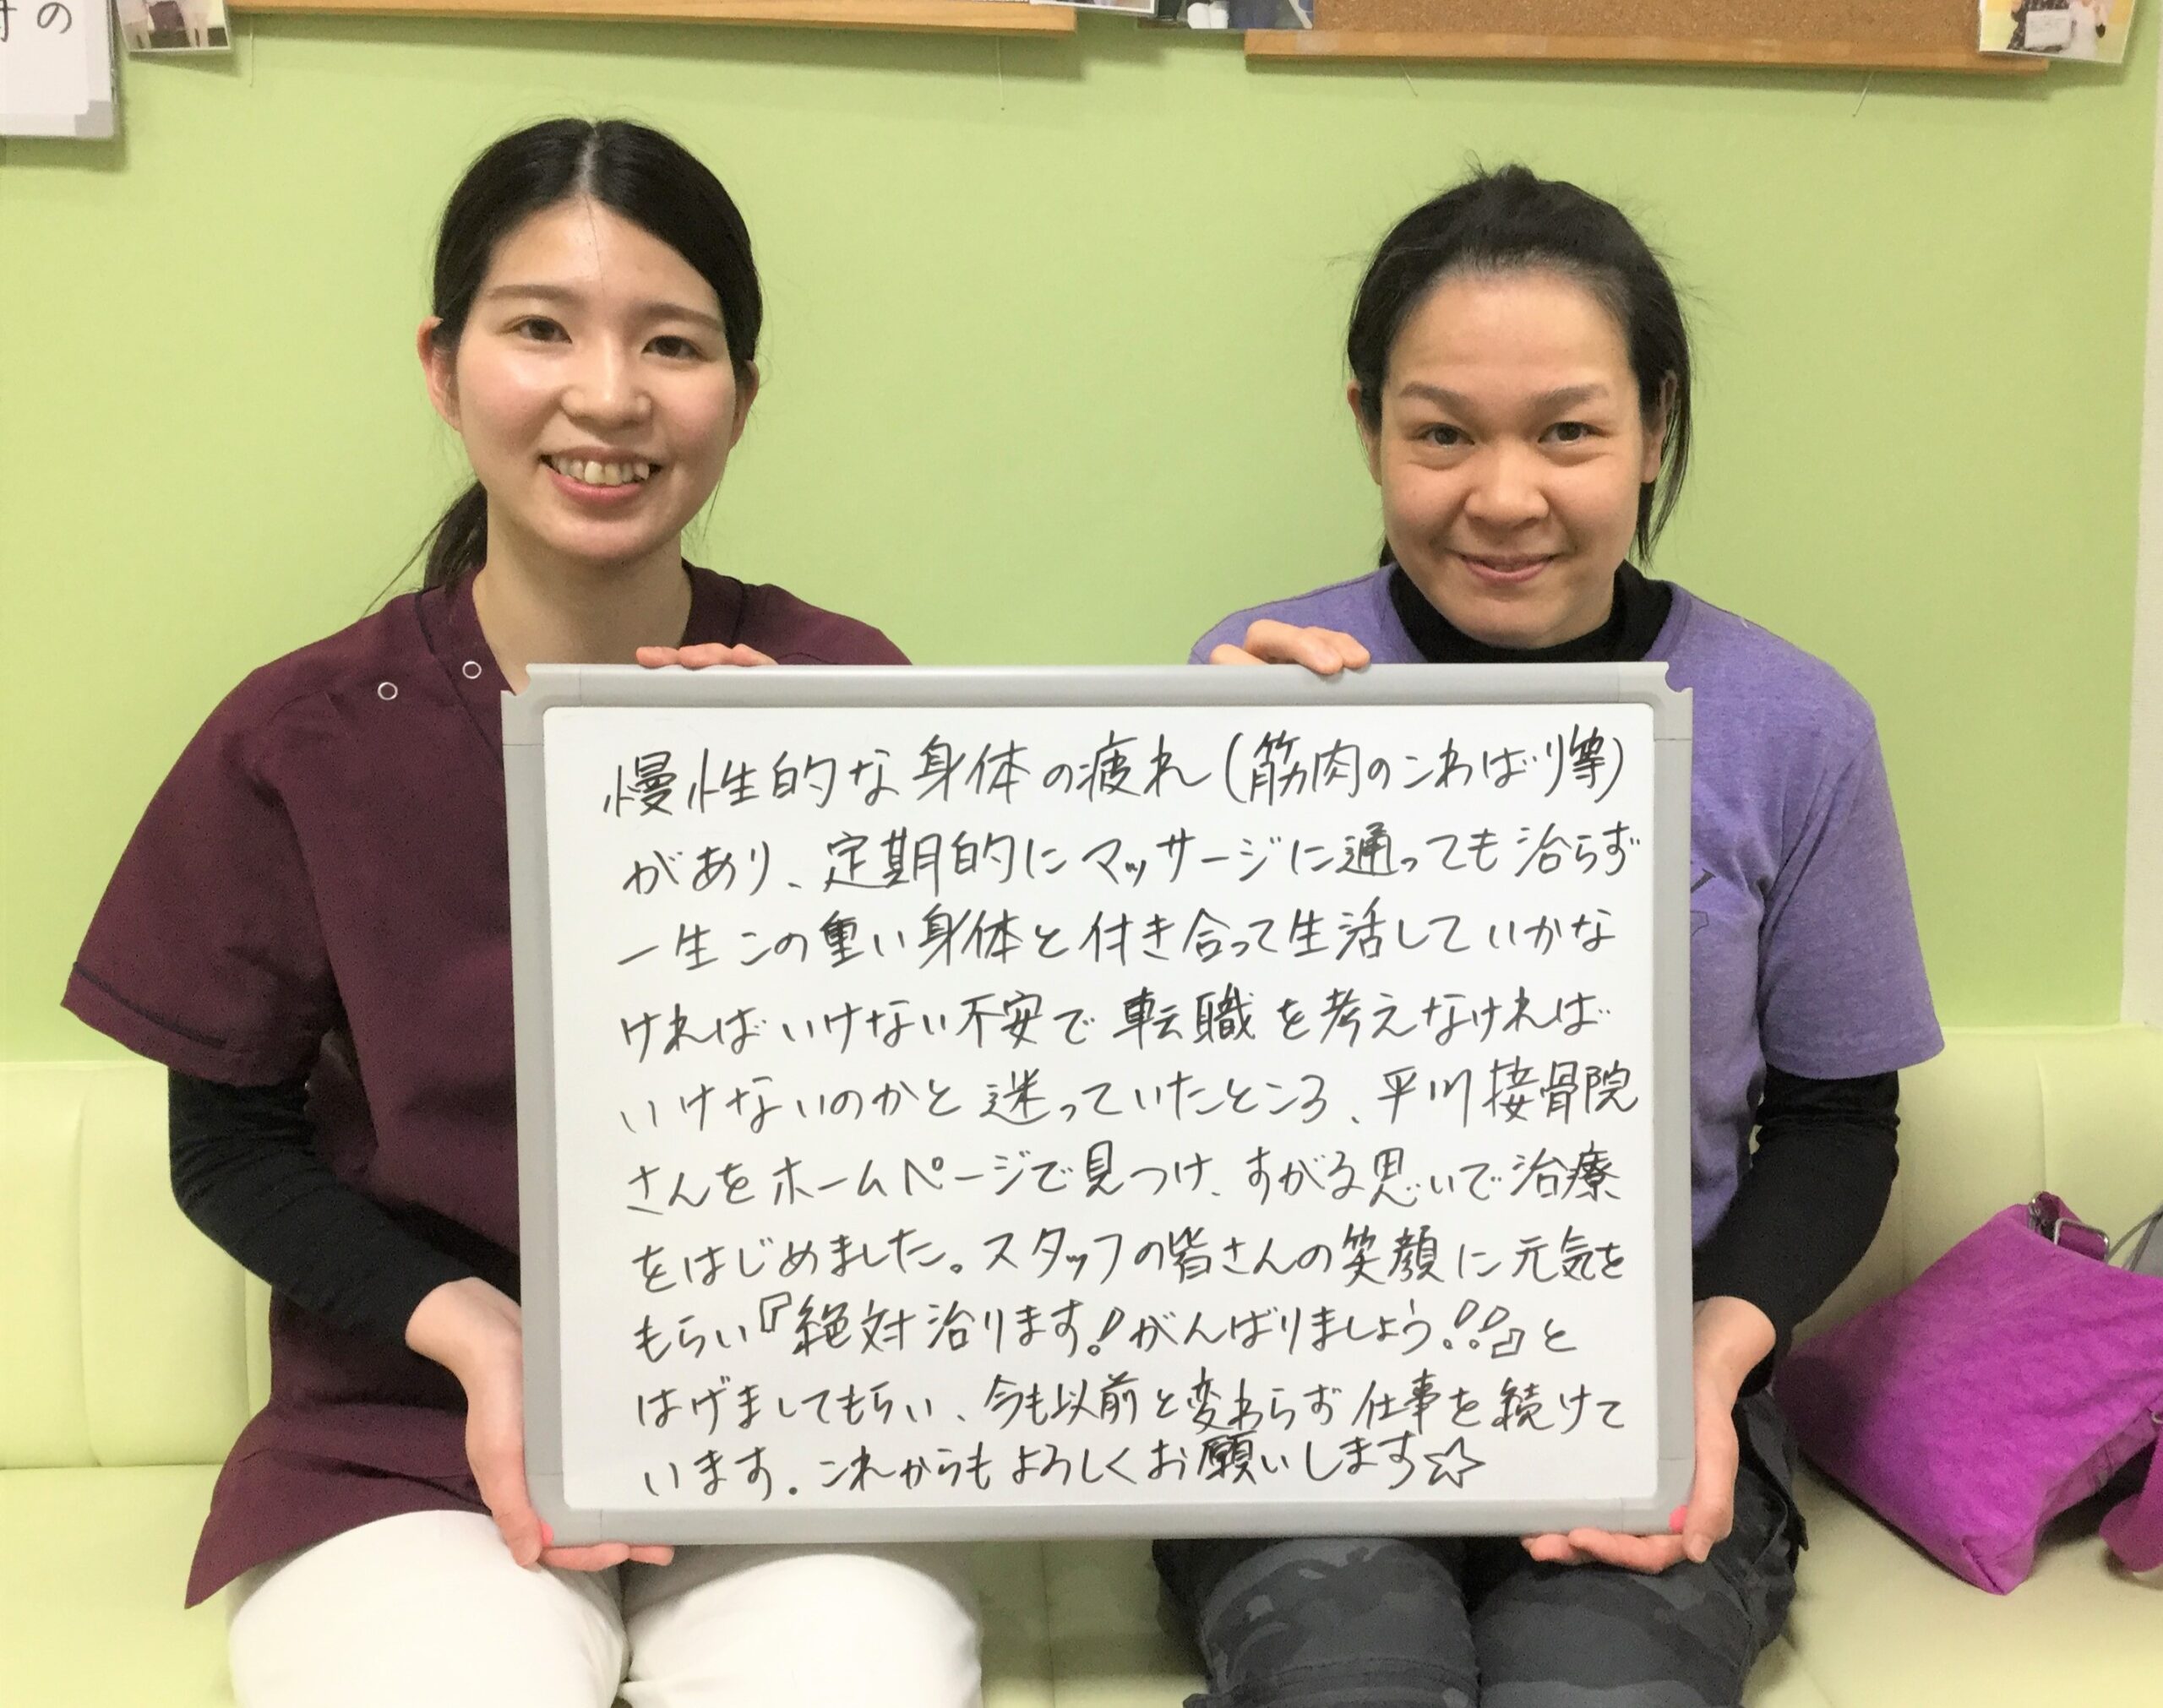 村の
慢性的な身体の疲れ(筋肉のこわばり等)
があり、定期的にマッサージに通っても治らず
一生この重い身体と付き合って生活していかな
ければいけない不安で転職を考えなければ
いけないのかと迷っていたところ、平川接骨院
さんをホームページで見つけ、すがる思いで治療
をはじめました。スタッフの皆さんの笑顔に元気を
もらい『絶対治ります!がんばりましょう!!』と
はげましてもらい、今も以前と変わらず仕事を続けて
います。これからもよろしくお願いします☆